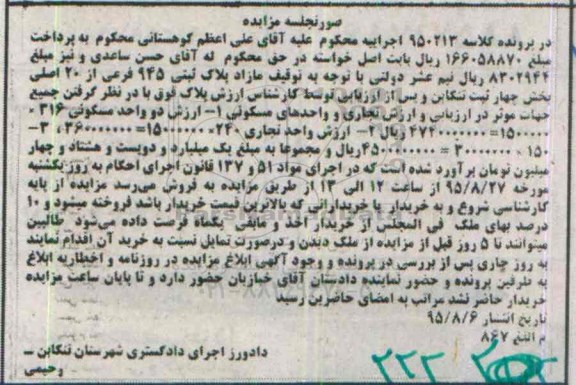 صورتجلسه مزایده
در پرونده کلاسه ۹۵۰۲۱۳ اجراییه محکوم علیه آقای علی اعظم کوهستانی محکوم به پرداخت
مبلغ ۱۶۶۰۵۸۸۷۰ ریال بابت اصل خواسته در حق محکوم له آقای حسن ساعدی و نیز مبلغ
۸۳۰۲۹۴۴ ریال نیم عشر دولتی با توجه به توقیف مازاد پلاک ثبتی ۹۴۵ فرعی از ۲۰ اصلی
بخش چهار ثبت تنکابن و پس از ارزیابی توسط کارشناس ارزش پلاک فوق با در نظر گرفتن جمیع
جهات موثر در ارزیابی و ارزش تجاری و واحدهای مسکونی ۱- ارزش دو واحد مسکونی ۳۱۶ *
۱۵۰۰۰۰۰۰=۴۷۴۰۰۰۰۰۰۰ ریال ۲- ارزش واحد تجاری ۲۴۰*۱۵۰۰۰۰۰۰=۳۶۰۰۰۰۰۰۰۰ ۳-
۱۵۰ * ۳۰۰۰۰۰۰۰ =۴۵۰۰۰۰۰۰۰۰ریال و مجموعا به مبلغ یک میلیارد و دویست و هشتاد و چهار
میلیون تومان برآورد شده است که در اجرای مواد ۵۱ و ۱۳۷ قانون اجرای احکام به روز یکشنبه
مورخه ۹۵/۸/۲۷ از ساعت ۱۲ الی ۱۳ از طریق مزایده به فروش می‌رسد مزایده از پایه
کارشناسی شروع و به خریدار یا خریدارانی که بالاترین قیمت خریدار باشد فروخته میشود و ۱۰
درصد بهای ملک فی المجلس از خریدار اخذ و مابقی یکماه فرصت داده می‌شود طالبین
میتوانند تا ۵ روز قبل از مزایده از ملک دیدن و درصورت تمایل نسبت به خرید آن اقدام نمایند
به روز جاری پس از بررسی در پرونده و وجود آگهی ابلاغ مزایده در روزنامه و اخطاریه ابلاغ
به طرفین پرونده و حضور نماینده دادستان آقای خبازیان حضور دارد و تا پایان ساعت مزایده
خریدار حاضر نشد مراتب به امضای حاضرین رسید
تاریخ انتشار ۹۵/۸/۶
م الف ۸۶۷
دادورز اجرای دادگستری شهرستان تنکابن –
رحیمی
۲۲۳